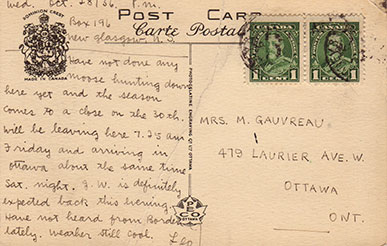 Wed. Oct. 28/36. P.m.
Box 196
New Glasgow, N.S.
Have not done any
moose hunting down
here yet and the season
comes to a close on the 30th.
Will be leaving here 7.25 am
Friday and arriving in
Ottawa about the same time
Sat. night. J.W. is definitely
expected back this evening.
Have not heard from Borde
lately. Weather still cool.
Leo
DOMINION CREST
MADE IN CANADA
POST CARD
Carte Postale
PHOTOGELATINE ENGRAVING CO LT OTTAWA
PECO
OTTAWA
1 1
1 1
MRS. M. GAUVREAU
479 LAURIER AVE. W.
OTTAWA
ONT.